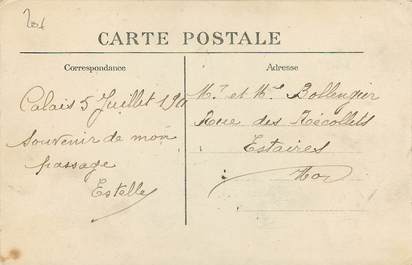 CARTE POSTALE
Correspondance
Calais 5 Juillet 190
Souvenir de mon
passage
Estelle
Adresse
Mr et Me Bollengier
Rue des Récollets
Estaires
Nord